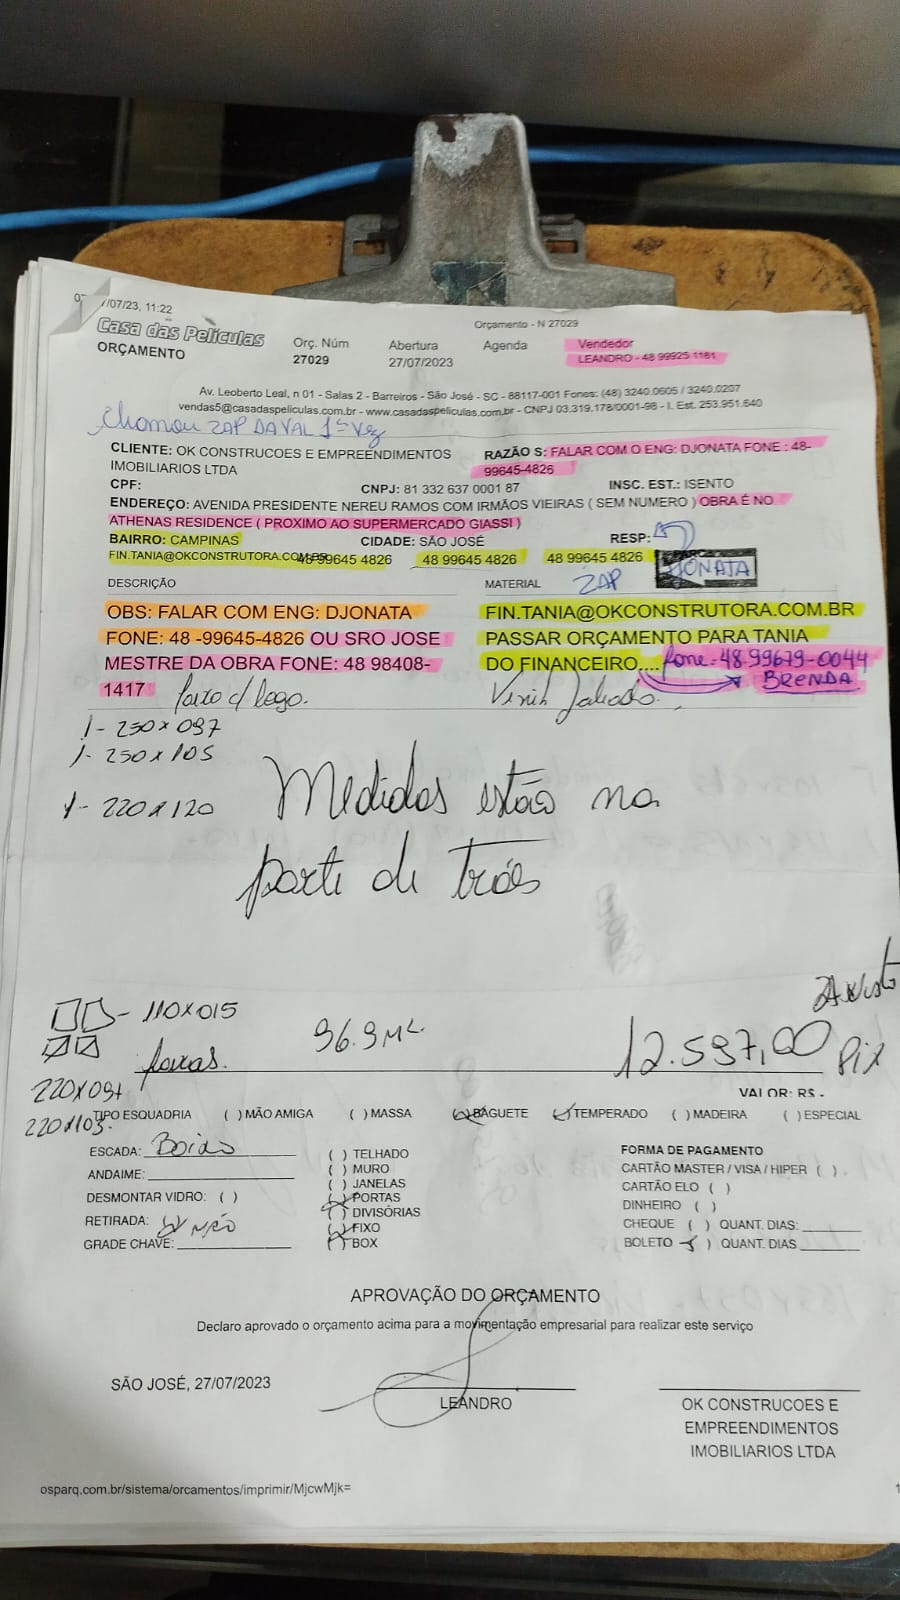 /07/23, 11:22
Orçamento - N 27029
Casa das Películas
ORÇAMENTO
Orç. Núm
27029
Abertura
27/07/2023
Agenda
Vendedor
LEANDRO - 48 99925 1181
Av. Leoberto Leal, n 01 - Salas 2 - Barreiros - São José - SC - 88117-001 Fones: (48) 3240.0605 / 3240.0207
vendas5@casadaspeliculas.com.br - www.casadaspeliculas.com.br - CNPJ 03.319.178/0001-98 - I. Est. 253.951.640
Chamou ZAP DAVAL 1ª Vez
CLIENTE: OK CONSTRUCOES E EMPREENDIMENTOS
IMOBILIARIOS LTDA
RAZÃO S: FALAR COM O ENG: DJONATA FONE : 48-
99645-4826
CPF:
CNPJ: 81 332 637 0001 87
INSC. EST.: ISENTO
ENDEREÇO: AVENIDA PRESIDENTE NEREU RAMOS COM IRMÃOS VIEIRAS ( SEM NUMERO ) OBRA É NO
ATHENAS RESIDENCE ( PROXIMO AO SUPERMERCADO GIASSI )
BAIRRO: CAMPINAS
CIDADE: SÃO JOSÉ
RESP:
FIN.TANIA@OKCONSTRUTORA.COM.BR
48 99645 4826
48 99645 4826
48 99645 4826
DJONATA
DESCRIÇÃO
MATERIAL
ZAP
OBS: FALAR COM ENG: DJONATA
FONE: 48 -99645-4826 OU SRO JOSE
MESTRE DA OBRA FONE: 48 98408-
1417
FIN.TANIA@OKCONSTRUTORA.COM.BR
PASSAR ORÇAMENTO PARA TANIA
DO FINANCEIRO.... fone: 48.99679-0044
BRENDA
1- 250x097
1- 250x105
1- 220x120
Medidas estão na
parte de trás
110x015
96.9M².
12.597,00
Pix
220x097
220x103
VALOR: R$ -
TIPO ESQUADRIA ( ) MÃO AMIGA ( ) MASSA ( ) BAGUETE ( ) TEMPERADO ( ) MADEIRA ( ) ESPECIAL
ESCADA:
ANDAIME:
DESMONTAR VIDRO: ( )
RETIRADA: NÃO
GRADE CHAVE:
( ) TELHADO
( ) MURO
( ) JANELAS
( ) PORTAS
( ) DIVISÓRIAS
( ) FIXO
( ) BOX
FORMA DE PAGAMENTO
CARTÃO MASTER / VISA / HIPER ( )
CARTÃO ELO ( )
DINHEIRO ( )
CHEQUE ( ) QUANT. DIAS:
BOLETO ( ) QUANT. DIAS
APROVAÇÃO DO ORÇAMENTO
Declaro aprovado o orçamento acima para a movimentação empresarial para realizar este serviço
SÃO JOSÉ, 27/07/2023
LEANDRO
OK CONSTRUCOES E
EMPREENDIMENTOS
IMOBILIARIOS LTDA
osparq.com.br/sistema/orcamentos/imprimir/MjcwMjk=